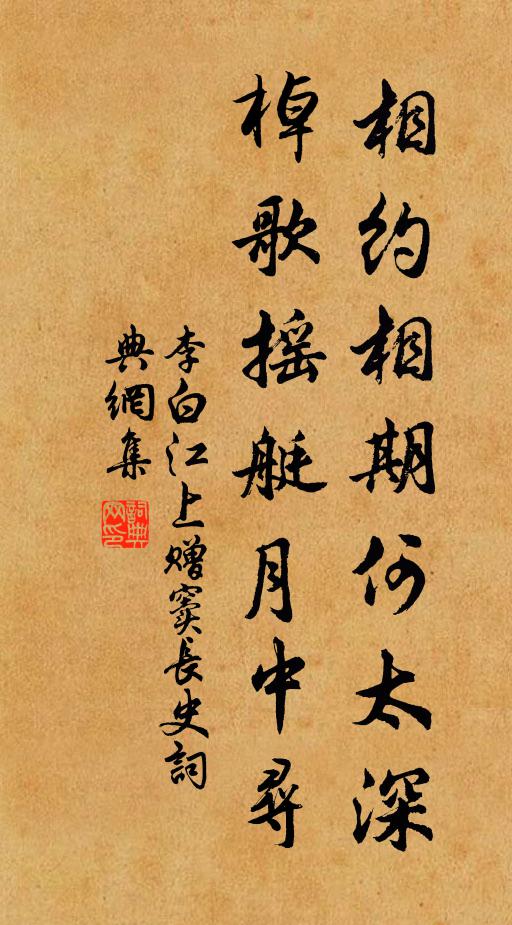 相约相期何太深
棹歌摇艇月中尋
李白江上贈窦長史詞
典網集
詞典
网印